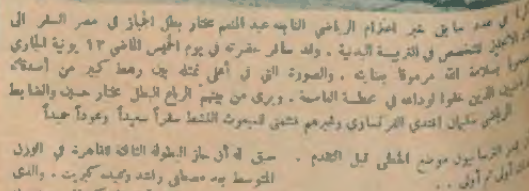 في عدد سابق خبر اعتزام الرياضي النابغة عبد المنعم مختار بطل الجباز في مصر السفر الى
للتخصص في التربية البدنية . وقد سافر حضرته في يوم الخميس الماضي ١٣ يونية الجاري
بسلامة الله مرموقا بعنايته . والصورة التي في أعلى تمثله بين رهط كبير من أصدقائه
الذين خفوا لوداعه في محطة العاصمة . ويرى من بينهم الرباع البطل مختار حسين والضابط
الرياضي سليمان افندي وغيرهم فنتمنى للمبعوث النشط سفراً سعيداً وعوداً حميداً
موضع الخطى قبل التقدم .
سبق له أن حاز البطولة الثالثة للقاهرة في الوزن
المتوسط بعد مصطفى والذى